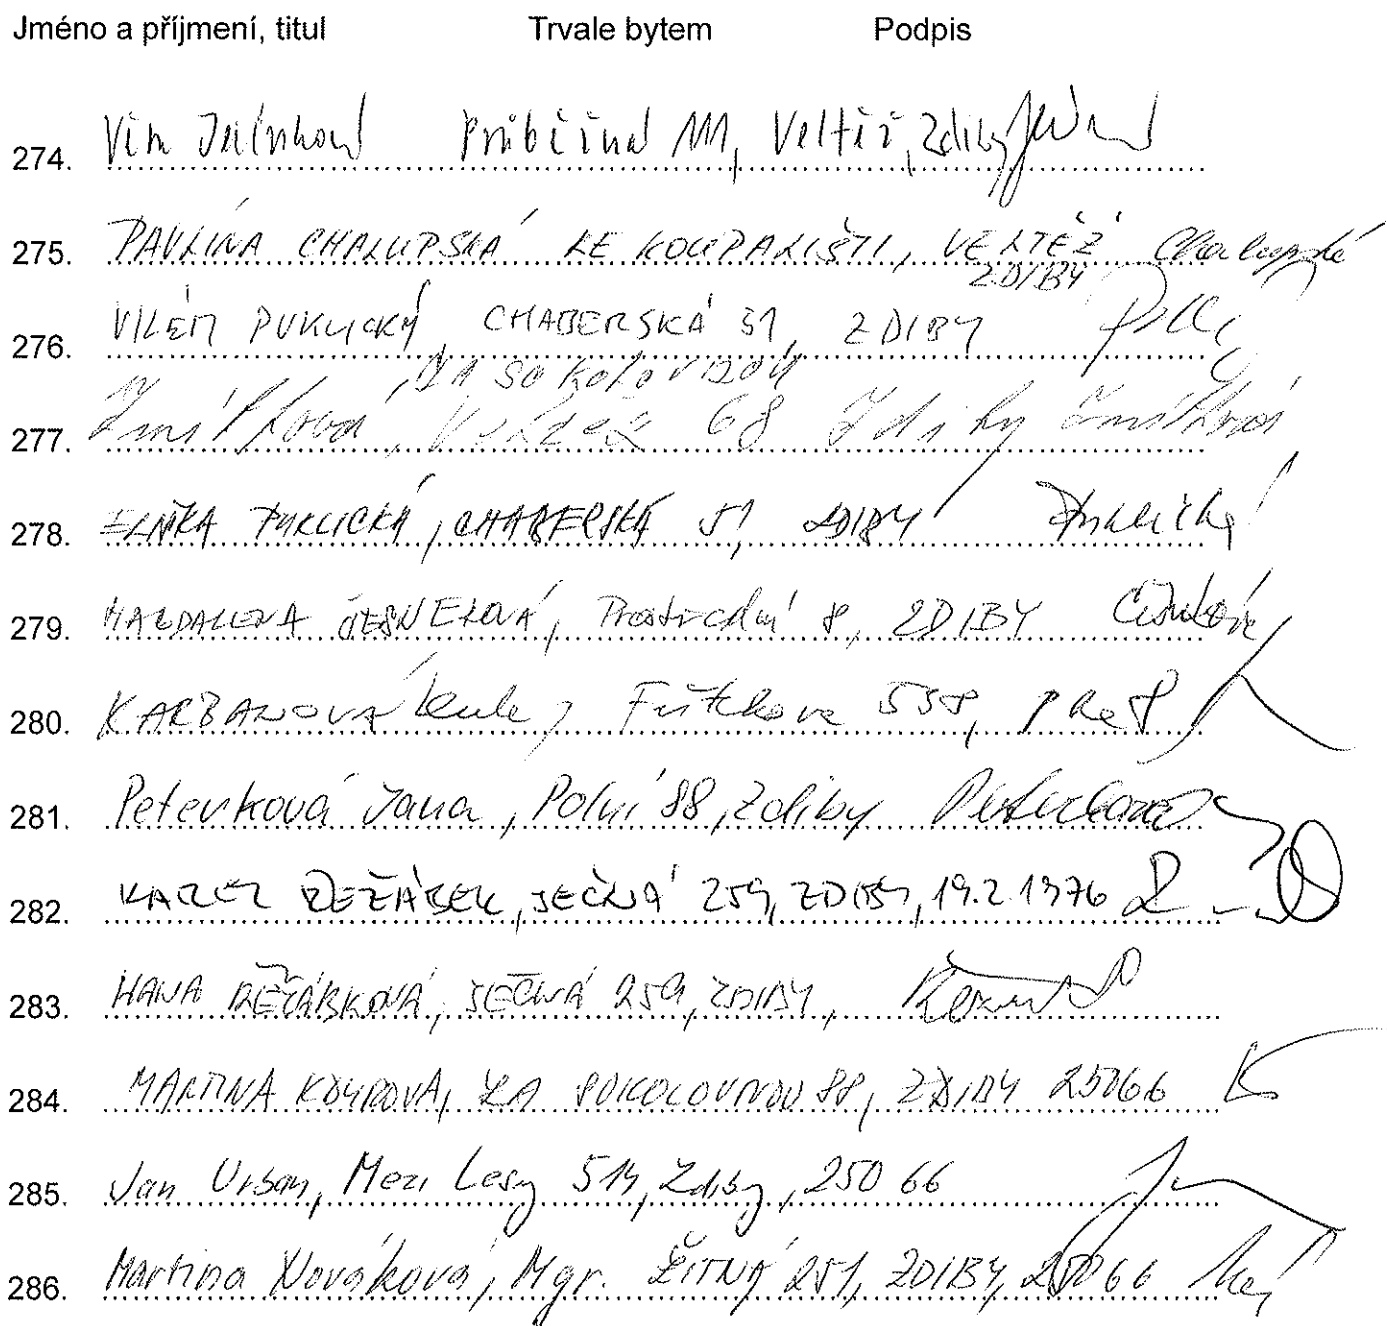 Jméno a příjmení, titul Trvale bytem Podpis
274. Průběžná 111, Veltěž, Zdiby
275. PAVLÍNA CHALUPSKÁ KE KOUPALIŠTI, VELTĚŽ Chalupská
ZDIBY
276. VILÉM PUKLICKÝ, CHABERSKÁ 51, ZDIBY
ZA SOKOLOVNOU
277. Veltěž 68 Zdiby
278. ELIŠKA PUKLICKÁ, CHABERSKÁ 51, ZDIBY Puklická
279. MAGDALENA ČESNEKOVÁ, Prostřední 8, ZDIBY
280. KARBANOVÁ 558,
281. Peterková Jana, Polní 88, Zdiby Peterková
282. KAREL ŘEŽÁBEK, JEČNÁ 259, ZDIBY, 19.2.1976
283. HANA ŘEŽÁBKOVÁ, JEČNÁ 259, ZDIBY,
284. MARTINA ZA SOKOLOVNOU 88, ZDIBY 25066
285. Jan Urban, Mezi Lesy 514, Zdiby, 250 66
286. Martina Nováková, Mgr. ŽITNÁ 251, ZDIBY, 25066